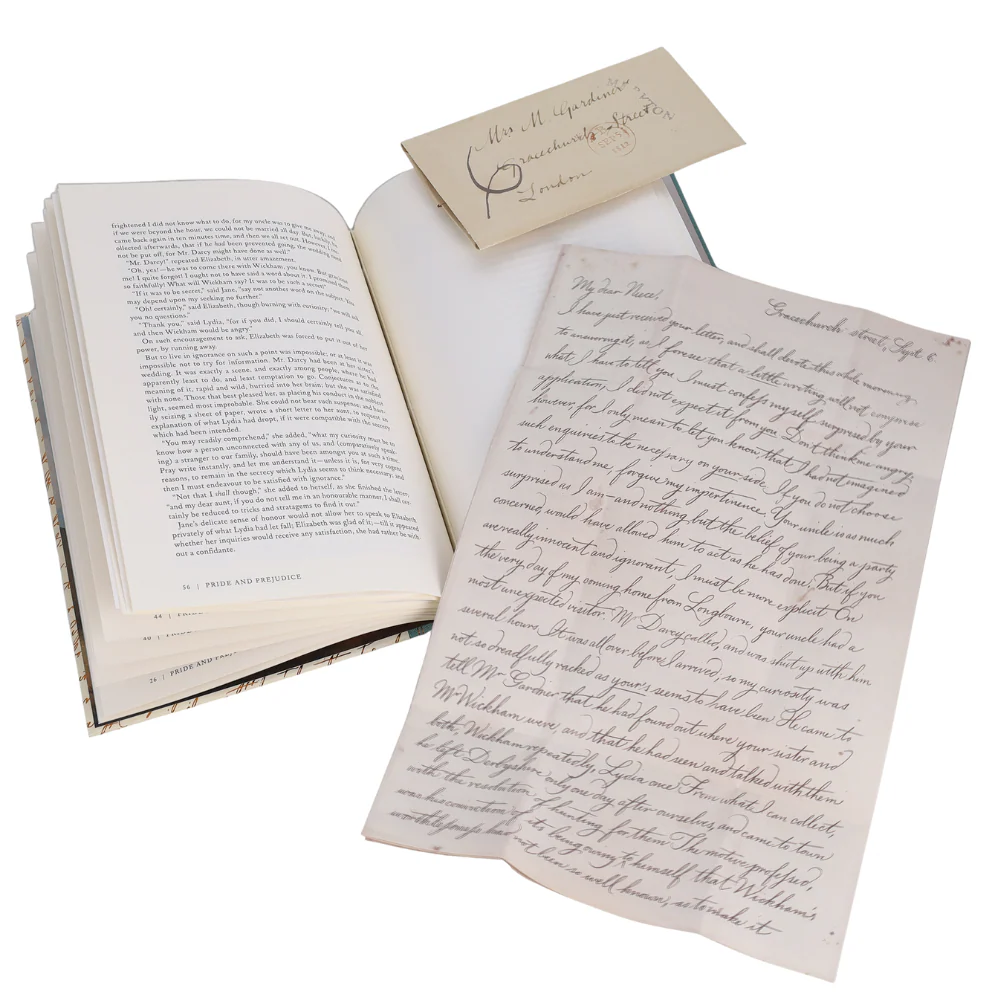 frightened I did not know what to do, for my uncle was to give me away; and
if we were beyond the hour, we could not be married all day. But, luckily, he
came back again in ten minutes time, and then we all set out. However, I re-
collected afterwards, that if he had been prevented going, the wedding need
not be put off, for Mr. Darcy might have done as well."
"Mr. Darcy!" repeated Elizabeth, in utter amazement.
"Oh, yes!—he was to come there with Wickham, you know. But gracious
me! I quite forgot! I ought not to have said a word about it. I promised them
so faithfully! What will Wickham say? It was to be such a secret!"
"If it was to be secret," said Jane, "say not another word on the subject. You
may depend upon my seeking no further."
"Oh! certainly," said Elizabeth, though burning with curiosity; "we will ask
you no questions."
"Thank you," said Lydia, "for if you did, I should certainly tell you all,
and then Wickham would be angry."
On such encouragement to ask, Elizabeth was forced to put it out of her
power, by running away.
But to live in ignorance on such a point was impossible; or at least it was
impossible not to try for information. Mr. Darcy had been at her sister's
wedding. It was exactly a scene, and exactly among people, where he had
apparently least to do, and least temptation to go. Conjectures as to the
meaning of it, rapid and wild, hurried into her brain; but she was satisfied
with none. Those that best pleased her, as placing his conduct in the noblest
light, seemed most improbable. She could not bear such suspense; and hast-
ily seizing a sheet of paper, wrote a short letter to her aunt, to request an
explanation of what Lydia had dropt, if it were compatible with the secrecy
which had been intended.
"You may readily comprehend," she added, "what my curiosity must be to
know how a person unconnected with any of us, and (comparatively speak-
ing) a stranger to our family, should have been amongst you at such a time.
Pray write instantly, and let me understand it—unless it is, for very cogent
reasons, to remain in the secrecy which Lydia seems to think necessary; and
then I must endeavour to be satisfied with ignorance."
"Not that I shall though," she added to herself, as she finished the letter;
"and my dear aunt, if you do not tell me in an honourable manner, I shall cer-
tainly be reduced to tricks and stratagems to find it out."
Jane's delicate sense of honour would not allow her to speak to Elizabeth
privately of what Lydia had let fall; Elizabeth was glad of it;—till it appeared
whether her inquiries would receive any satisfaction, she had rather be with-
out a confidante.
56 | PRIDE AND PREJUDICE
44 | PRIDE
40 | PRIDE
26 | PRIDE AND PREJU
Mrs M. Gardiner
Gracechurch Street
London
Gracechurch street, Sept. 6.
My dear Niece!
I have just received your letter, and shall devote this whole morning
to as I foresee that a little writing will not comprise
what I have to tell you I must confess myself surprised by your
application; I did not expect it from you Don't think me angry,
however, for I only mean to let you know, that I had not imagined
such enquiries to be necessary on your side If you do not choose
to understand me, forgive my impertinence. Your uncle is as much
surprised as I am—and nothing but the belief of your being a party
concerned, would have allowed him to act as he has done. But if you
are really innocent and ignorant, I must be more explicit On
the very day of my coming home from Longbourn, your uncle had a
most unexpected visitor. Mr Darcy called, and was shut up with him
several hours. It was all over before I arrived; so my curiosity was
not so dreadfully racked as your's seems to have been He came to
tell Mr Gardner that he had found out where your sister and
Mr Wickham were, and that he had seen and talked with them
both, Wickham repeatedly, Lydia once From what I can collect,
he left Derbyshire only one day after ourselves, and came to town
with the resolution of hunting for them The motive professed,
was his conviction of its being owing to himself that Wickham's
had not been so well known, as to make it